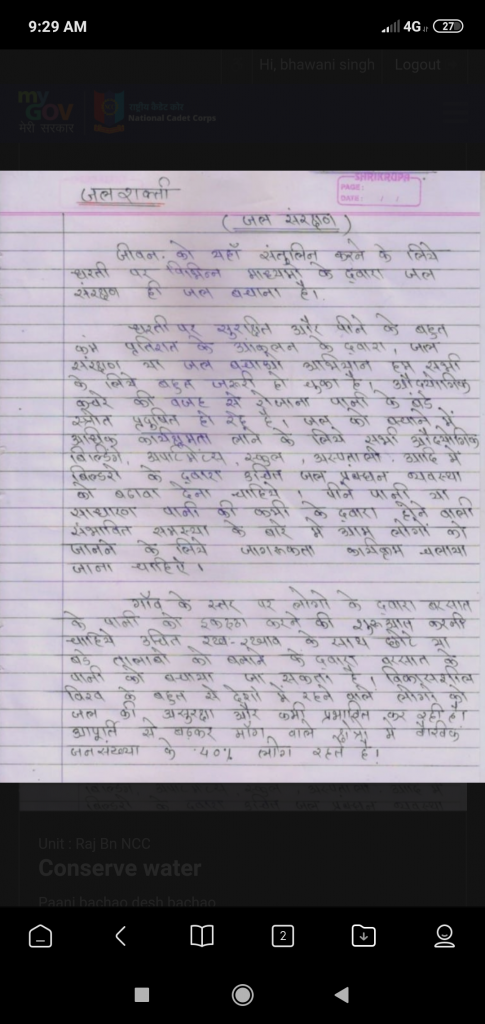 9:29 AM
4G 27
Hi, bhawani singh Logout
my
GOV
मेरी सरकार
राष्ट्रीय कैडेट कोर
National Cadet Corps
PAGE:
DATE: / /
जलशक्ती
( जल संरक्षण )
जीवन को यहाँ संतुलित करने के लिये
धरती पर विभिन्न माध्यमों के द्वारा जल
संरक्षण ही जल बचाना है।
धरती पर सुरक्षित और पीने के बहुत
कम प्रतिशत के आकलन के द्वारा, जल
संरक्षण या जल बचाओ अभियान हम सभी
के लिये बहुत जरूरी हो चुका है। औद्योगिक
कचरे की वजह से रोजाना पानी के बड़े
स्रोत प्रदूषित हो रहे है। जल को बचाने में
अधिक कार्यक्षमता लाने के लिये सभी औद्योगिक
बिल्डिंग, अपार्टमेंट्स, स्कूल, अस्पतालों आदि में
बिल्डरों के द्वारा उचित जल प्रबंधन व्यवस्था
को बढावा देना चाहिये। पीने पानी या
साधारण पानी की कमी के द्वारा होने वाली
संभावित समस्या के बारे में आम लोगों को
जानने के लिये जागरूकता कार्यक्रम चलाया
जाना चाहिए।
गाँव के स्तर पर लोगो के द्वारा बरसात
के पानी को इकट्ठा करने की शुरूआत करनी
चाहिये उचित रख-रखाव के साथ छोटे या
बडे तालाबों को बनाने के द्वारा बरसात के
पानी को बचाया जा सकता है। विकासशील
विश्व के बहुत से देशों में रहने वाले लोगों को
जल की असुरक्षा और कमी प्रभावित कर रही है।
आपूर्ति से बढ़कर माँग वाले क्षेत्रों में वैश्विक
जनसंख्या के 40% लोग रहते है।
Unit : Raj Bn NCC
Conserve water
Paani bachao desh bachao
2